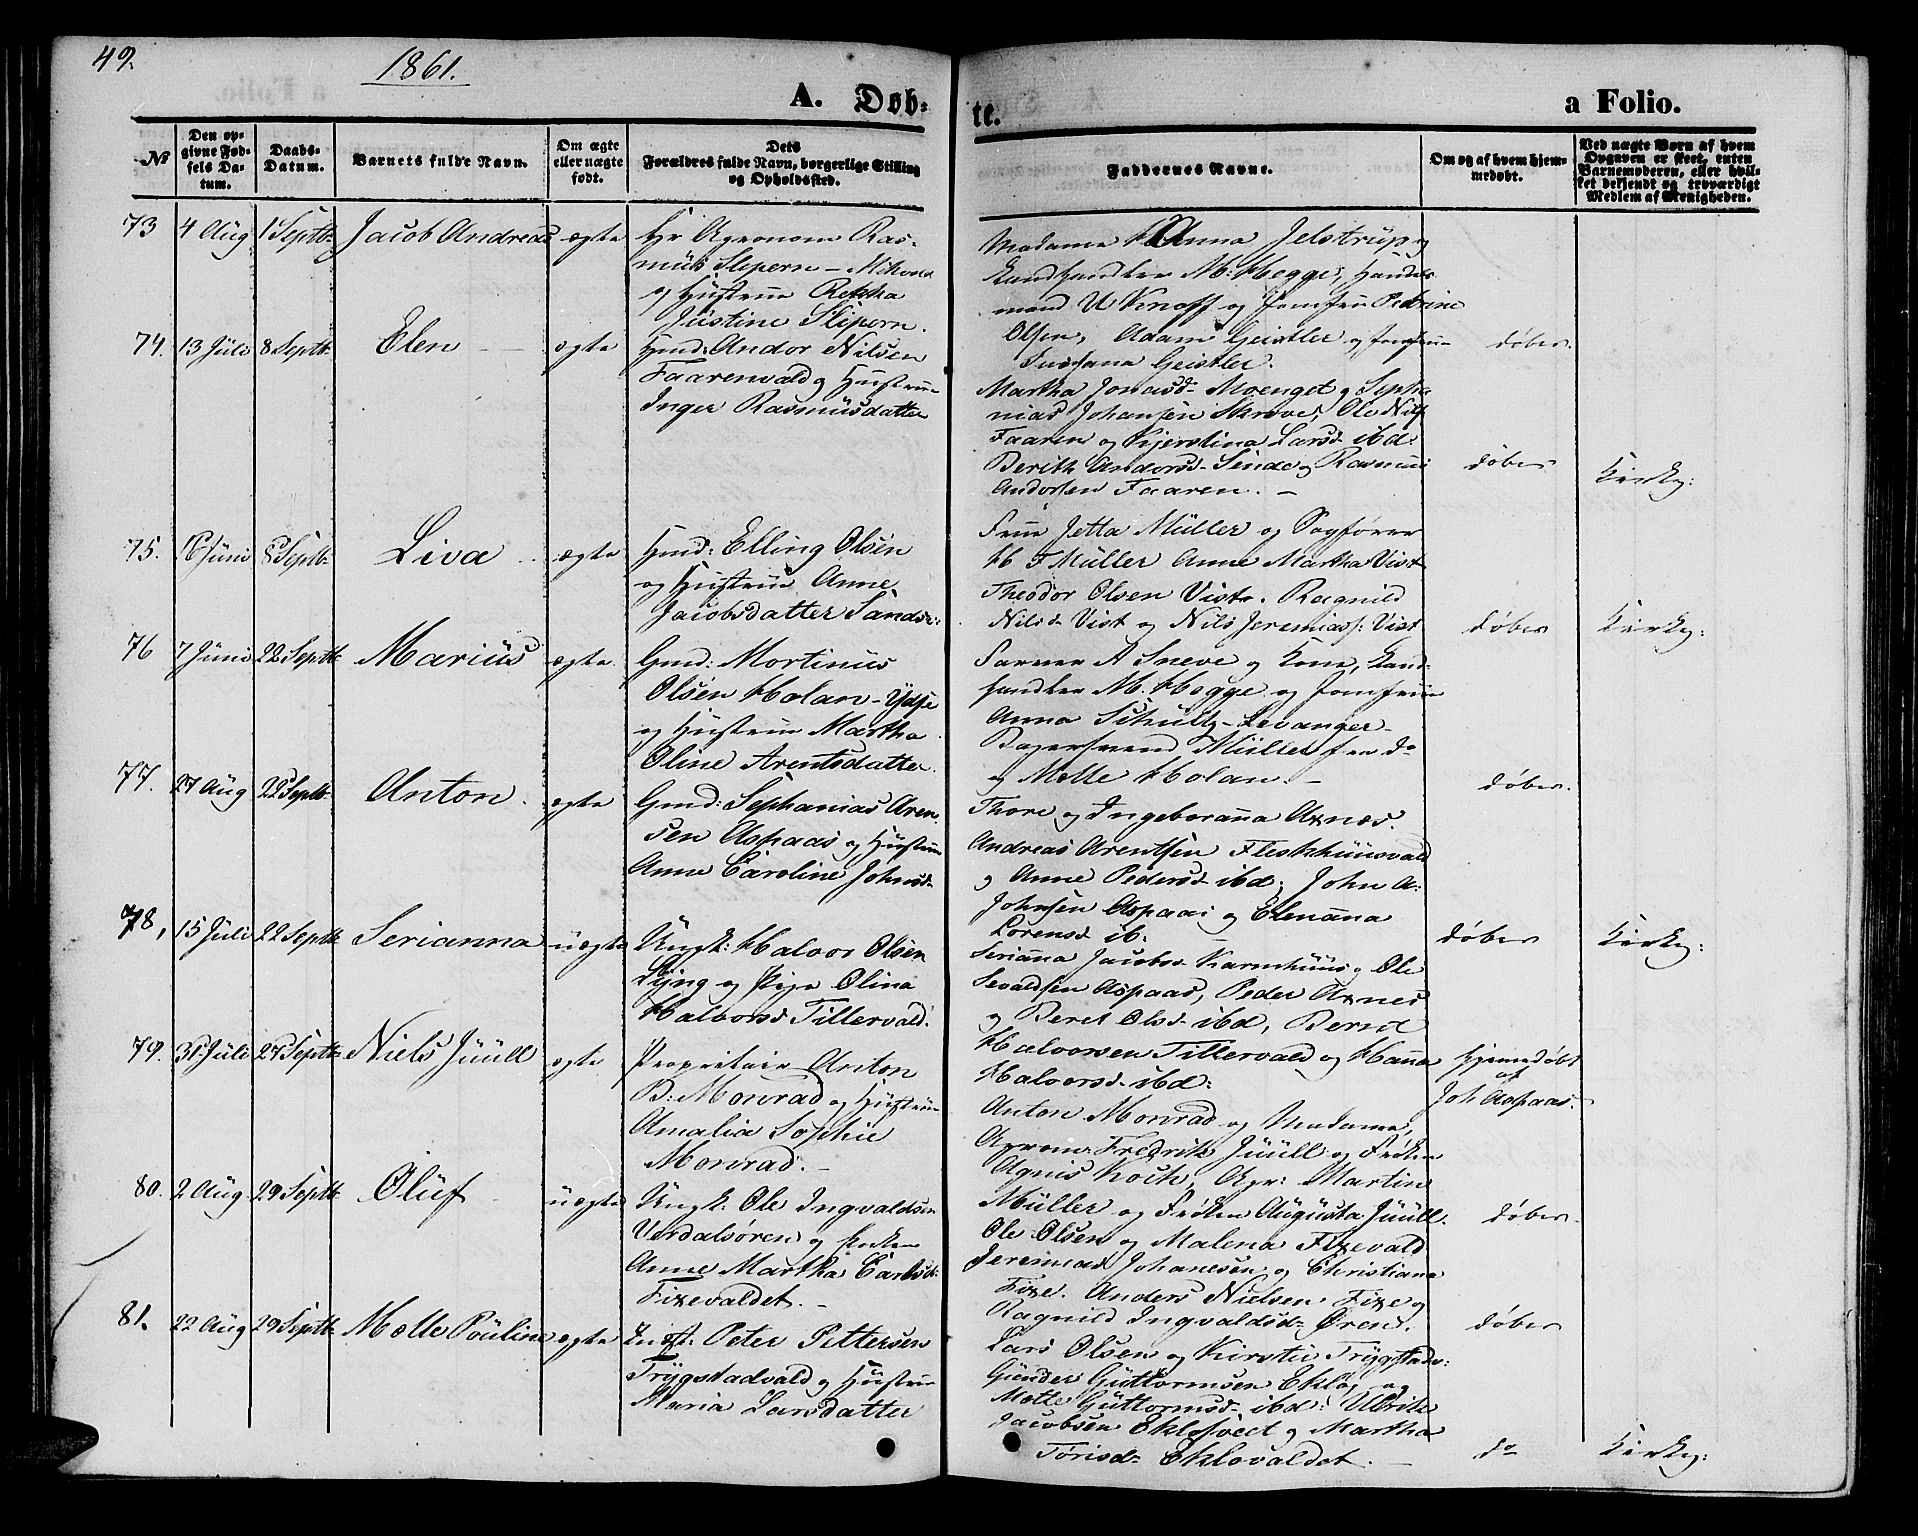 49.
1861.
A. Døb-
te.
a Folio.
№
Den op-
givne Fød-
sels Da-
tum.
Daabs-
Datum.
Barnets fulde Navn.
Om ægte
eller uægte
født.
Dets
Forældres fulde Navn, borgerlige Stilling
og Opholdssted.
Faddernes Navne.
Om og af hvem hjem-
medøbt.
Ved uægte Børn af hvem
Opgaven er skeet, enten
Barnemoderen, eller hvil-
ket delsendt og troværdigt
Medlem af Menigheden.
73
4 Aug
1 Septb
Jacob Andreas
ægte
Hr Agronom Ras-
mus Slipern -
og Hustrue
Justine Slipern.
Madame Anna Jelstrup og
Landhandler M. Hegge, Handels
mand U Knoff og Jomfru Pedrine
Olsen, Adam Geistler og Jomfru
Susana Geistler.
døber.
74.
13 Juli
8 Septb
Elen
ægte
Hmd: Andor Nilsen
Faarenvald og Hustrue
Inger Rasmusdatter
Martha Jonasd- Moenget og Sepha
nias Johansen Skrove, Ole Nils
Faaren og Kjerstina Larsd- ibd:
Berith Andorsd- Sende og Rasmus
Andorsen Faaren. -
døber
Kirkeg:
75.
16 Juni
8 Septb
Liva
ægte
Hmd: Elling Olsen
og Hustrue Anne
Jacobsdatter Sandse:
Frue Jetta Müller og Sagfører
H F Müller Anne Martha Vist
Theodor Olsen Vist. Ragnild
Nilsd- Vist og Nils Jeremiass: Vist
døber
Kirkeg:
76
7 Juni
22 Septb
Marius
ægte
Gmd: Mortinus
Olsen Holan - Ydse
og Hustrue Martha
Oline Arentsdatter.
Farver A Sneve og Kone, Land-
handler M. Hegge og Jomfrue
Anna Schultz - Levanger
Bagersvend Müller fra do
og Mette Holan. -
døber.
77.
27 Aug
22 Septb
Anton.
ægte
Gmd: Sephanias Aren
sen Aspaas og Hustrue
Anne Caroline Johnsd-
Thore og Ingeboranna Axnæs.
Andreas Arentsen Fleskhuusvald
og Anne Pedersd- ibd; John A:
Johnsen Aspaas og Elenanna
Lorensd- ib.
døber
Kirkeg:
78,
15 Juli
22 Septb
Serianna
uægte
Ungk: Halvor Olsen
Lyng og Pige Olina
Halvorsd Tillervald.
Serianna Jacobsd- Karmhuus og Ole
Sevaldsen Aspaas, Peder Axnes
og Beret Olsd- ibd, Bernt
Halvorsen Tillervald og Hanna
Halvorsd- ibd:
Hjemedøbt
af
Joh Aspaas.
79.
31 Juli
27 Septb
Niels Juull
ægte
Proprietair Anton
B: Monrad og Hustrue
Amalia Sophie
Monrad. -
Anton Monrad og Madame,
Agronom Fredrik Juull og Frøken
Agnis Koch, Agr: Martin
Müller og Frøken Augusta Juull.
døber.
80.
2 Aug
29 Septb
Oluf
uægte
Ungk: Ole Ingvaldsen
Verdalsøren og Enken
Anne Martha Carlsd-
Fixevaldet. -
Ole Olsen og Malena Fixevald
Jeremias Johanesen og Christiana
Fixe. Anders Nielsen Fixe og
Ragnild Ingvaldsd- Ørens.
døber
81.
22 Aug
29 Septb
Mette Pauline
ægte
Indst: Peter Pettersen
Trygstadvald og Hustrue
Maria Larsdatter
Lars Olsen og Kirstie Trygstads:
Gunder Guttormsen Eklo, og
Mette Guttormsd- ibd: Ulrik
Jacobsen Eklovæd og Martha
Torisd- Eklovaldet. -
do
Kirkeg: